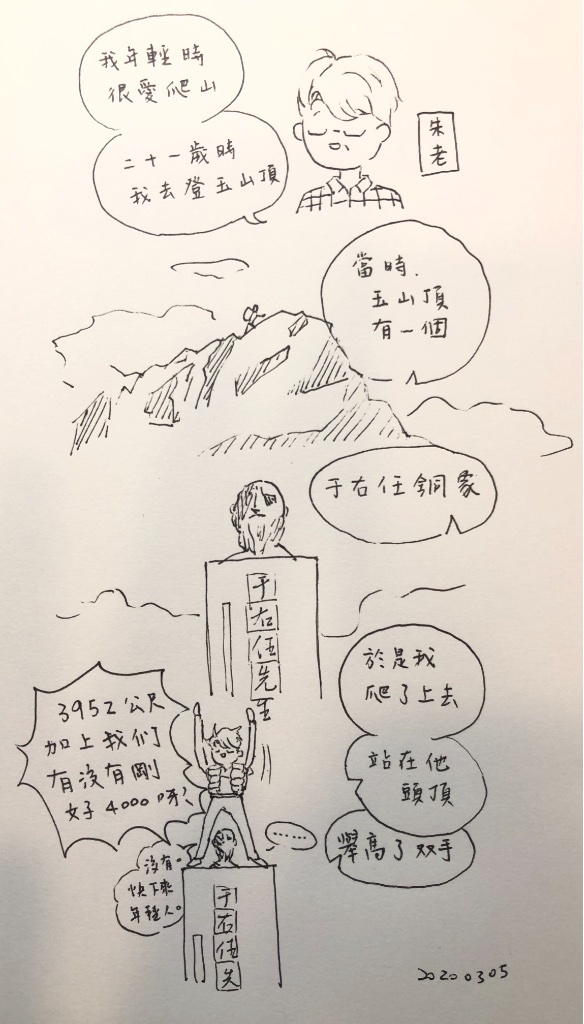 我年輕時
很愛爬山
二十一歲時
我去登玉山頂
朱老
當時.
玉山頂
有一個
于右任銅象
于右任先生
於是我
爬了上去
站在他
頭頂
舉高了双手
3952公尺
加上我们
有沒有剛
好4000呀?
......
沒有。
快下來
年輕人。
于右任先
20200305